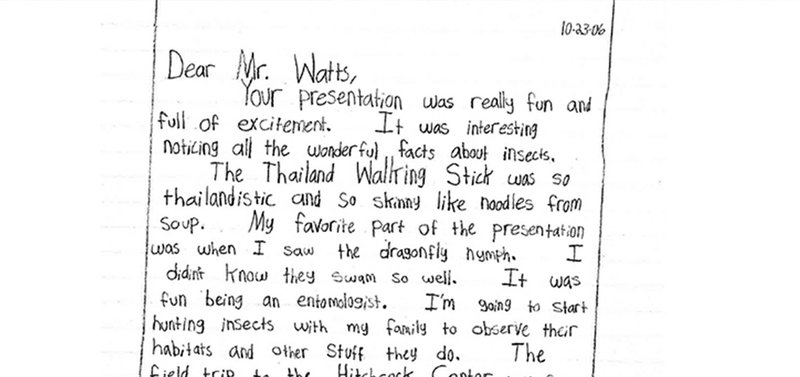 10-23-06
Dear Mr. Watts,
Your presentation was really fun and
full of excitement. It was interesting
noticing all the wonderful facts about insects.
The Thailand Walking Stick was so
thailandistic and so skinny like noodles from
soup. My favorite part of the presentation
was when I saw the dragonfly nymph. I
didn't know they swam so well. It was
fun being an entomologist. I'm going to start
hunting insects with my family to observe their
habitats and other stuff they do. The
field trip to the Hitchcock Center